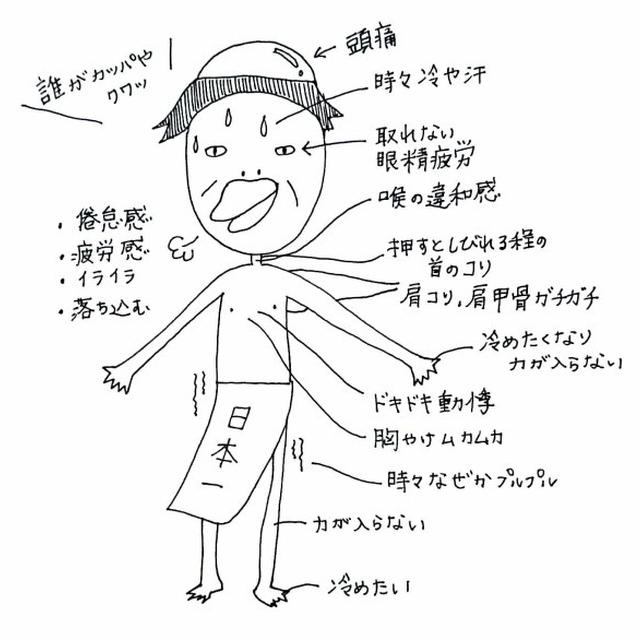 誰がカッパや
クワッ
頭痛
時々冷や汗
取れない
眼精疲労
喉の違和感
・倦怠感
・疲労感
・イライラ
・落ち込む
押すとしびれる程の
首のコリ
肩コリ,肩甲骨ガチガチ
冷めたくなり
力が入らない
ドキドキ動悸
胸やけムカムカ
日本一
時々なぜかプルプル
力が入らない
冷めたい